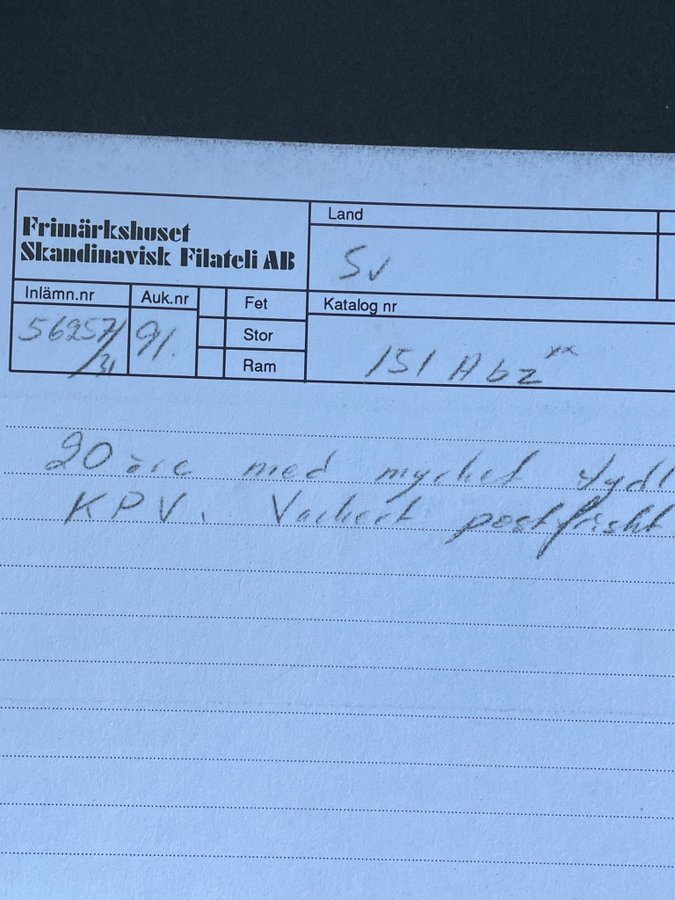 Frimärkshuset
Skandinavisk Filateli AB
Land
Sv
Inlämn.nr
Auk.nr
Fet
Katalog nr
56257/31
91.
Stor
151 A bz xx
Ram
20 öre med mycket tydl
KPV. Vackert postfriskt